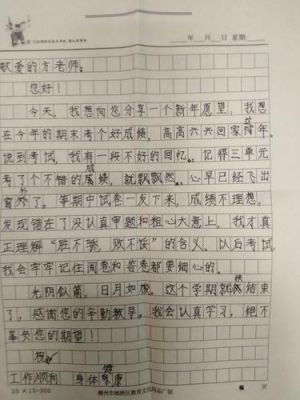 年 月 日 星期
敬爱的方老师:
您好!
今天,我想向您分享一个新年愿望,我想
在今年的期末考个好成绩,高高兴兴回家过年。
说到考试,我有一段不好的回忆。记得三单元
考了个不错的成绩,就飘飘然,心早已经飞出
窗外了。等期中试卷一发下来,成绩不理想,
发现错在了没认真审题和粗心大意上,我才真
正理解“胜不骄,败不馁”的含义,以后考试
我会牢牢记住阅卷和答卷都要细心的。
光阴似箭,日月如梭,这个学期就快结束
了,感谢您的辛勤教导。我会认真学习,绝不
辜负您的期望!
祝
工作顺利 身体健康
20×15=300
页